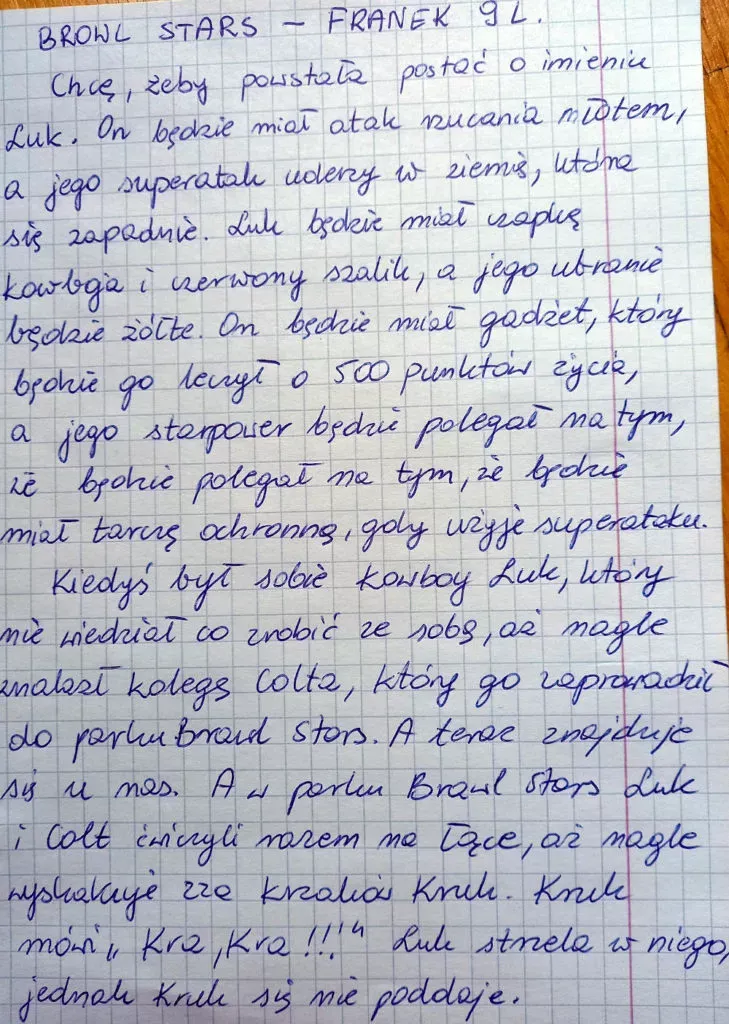 BROWL STARS – FRANEK 9 L.
Chcę, żeby powstała postać o imieniu
Luk. On będzie miał atak rzucania młotem,
a jego superatak uderzy w ziemię, która
się zapadnie. Luk będzie miał czapkę
kowboja i czerwony szalik, a jego ubranie
będzie żółte. On będzie miał gadżet, który
będzie go leczył o 500 punktów życia,
a jego starpower będzie polegał na tym,
że będzie polegał na tym, że będzie
miał tarczę ochronną, gdy użyje superataku.
Kiedyś był sobie kowboy Luk, który
nie wiedział co zrobić ze sobą, aż nagle
znalazł kolegę Colta, który go zaprowadził
do parku Brawl Stars. A teraz znajduje
się u nas. A w parku Brawl Stars Luk
i Colt ćwiczyli razem na łące, aż nagle
wyskakuje zza krzaków Kruk. Kruk
mówi „Kra, Kra!!!" Luk strzela w niego,
jednak Kruk się nie poddaje.